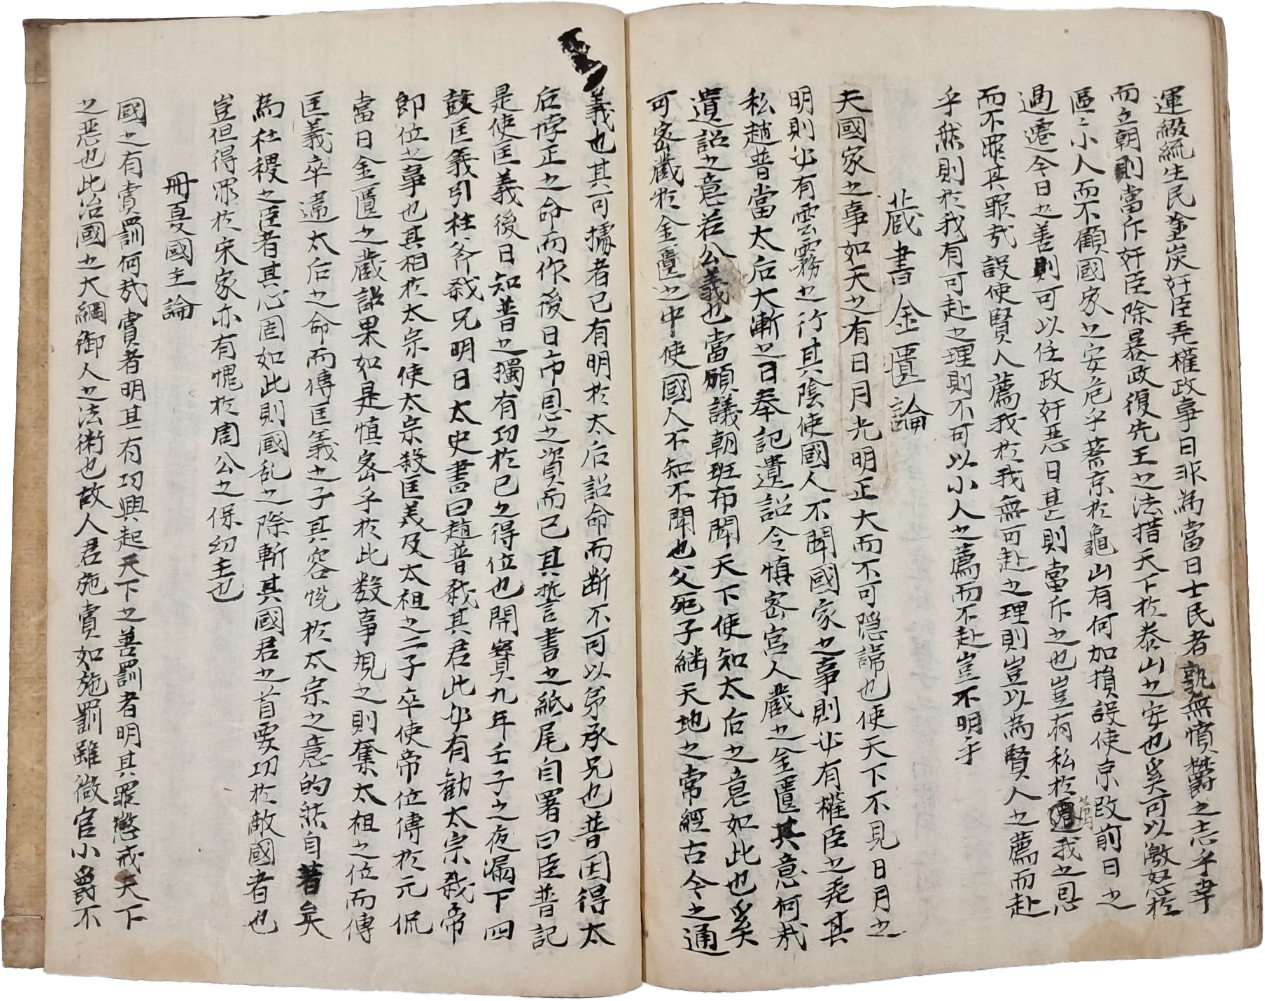 運綴統生民塗炭奸臣弄權政事日非為當日士民者孰無憤欝之志乎幸
而立朝則當斥奸臣除暴政復先王之法措天下於泰山之安也奚可以激怒於
區〻小人而不顧國家之安危乎蔡京於龜山有何加損設使京改前日之
過遷今日之善則可以任政奸惡日甚則當斥之也豈有私於薦我之恩
而不罪其罪哉設使賢人薦我於我無可赴之理則豈以為賢人之薦而赴
乎然則於我有可赴之理則不可以小人之薦而不赴豈不明乎
藏書金匱論
夫國家之事如天之有日月光明正大而不可隱諱也使天下不見日月之
明則必有雲霧之行其陰使國人不聞國家之事則必有權臣之売其
私趙普當太后大漸之日奉記遺詔令慎密宮人藏之金匱其意何哉
遺詔之意若公義也當願議朝班布聞天下使知太后之意如此也奚
可密藏於金匱之中使國人不知不聞也父死子繼天地之常經古今之通
義也其可據者已有明於太后詔命而断不可以弟承兄也普因得太
后悖正之命而作後日市恩之資而已其誓言書之紙尾自署曰臣普記
是使匡義後日知普之獨有功於已之得位也開寶九年壬子之夜漏下四
鼓匡義引柱斧弑兄明日太史書曰趙普弑其君此必有勸太宗弑帝
即位之事也其相於太宗使太宗殺匡義及太祖之二子卒使帝位傳於元侃
當日金匱之藏詔果如是慎密乎於此数事規之則奪太祖之位而傳
匡義卒違太后之命而傳匡義之子其容恱於太宗之意的然自著矣
為社稷之臣者其心固如此則國乱之際斬其國君之首要功於敵國者也
豈但得罪於宋家亦有愧於周公之保幼主也
冊夏國主論
國之有賞罰何哉賞者明其有功興起天下之善罰者明其罪懲戒天下
之惡也此治國之大綱御人之法術也故人君施賞如施罰雖微官小爵不